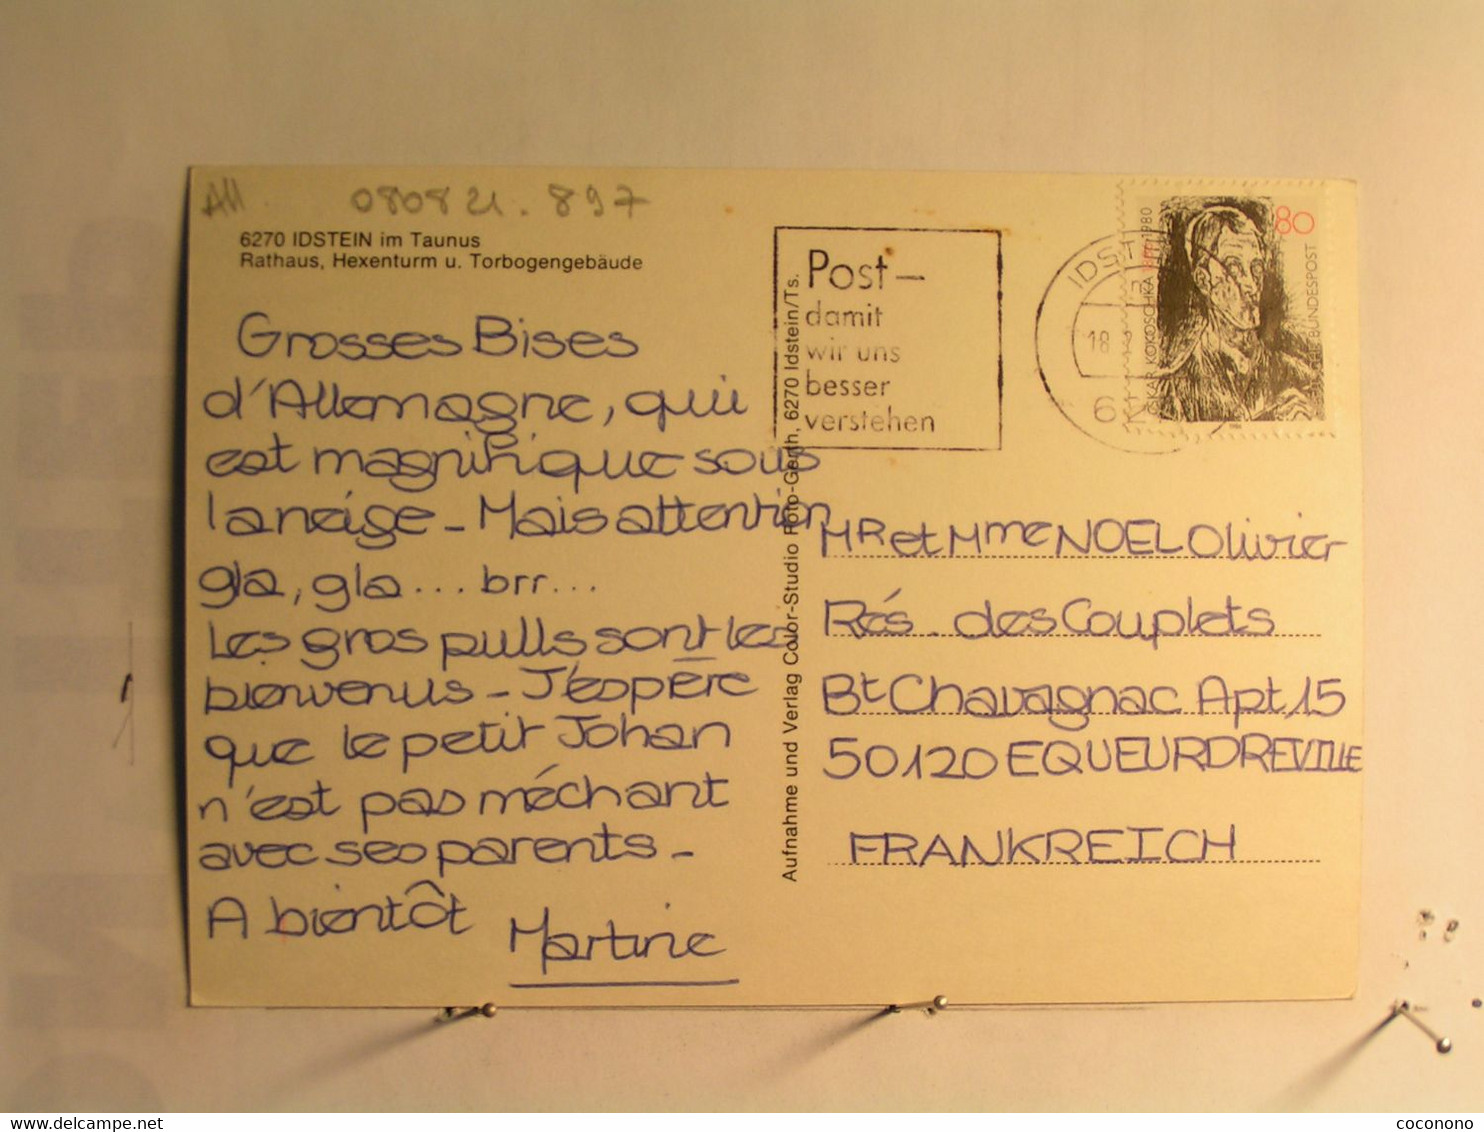 All 080821.897
6270 IDSTEIN im Taunus
Rathaus, Hexenturm u. Torbogengebäude
Grosses Bises
d'Allemagne, qui
est magnifique sous
la neige - Mais attention
gla, gla... brr...
Les gros pulls sont les
bienvenus - J'espère
que le petit Johan
n'est pas méchant
avec ses parents -
A bientôt
Martine
Aufnahme und Verlag Color-Studio Foto-Gerth, 6270 Idstein/Ts.
Post-
damit
wir uns
besser
verstehen
18
6
80
OSKAR KOKOSCHKA 1980
BUNDESPOST
MR et Mme NOEL Olivier
Rés. des Couplets
Bt Chavagnac Apt 15
50120 EQUEURDREVILLE
FRANKREICH
coconono